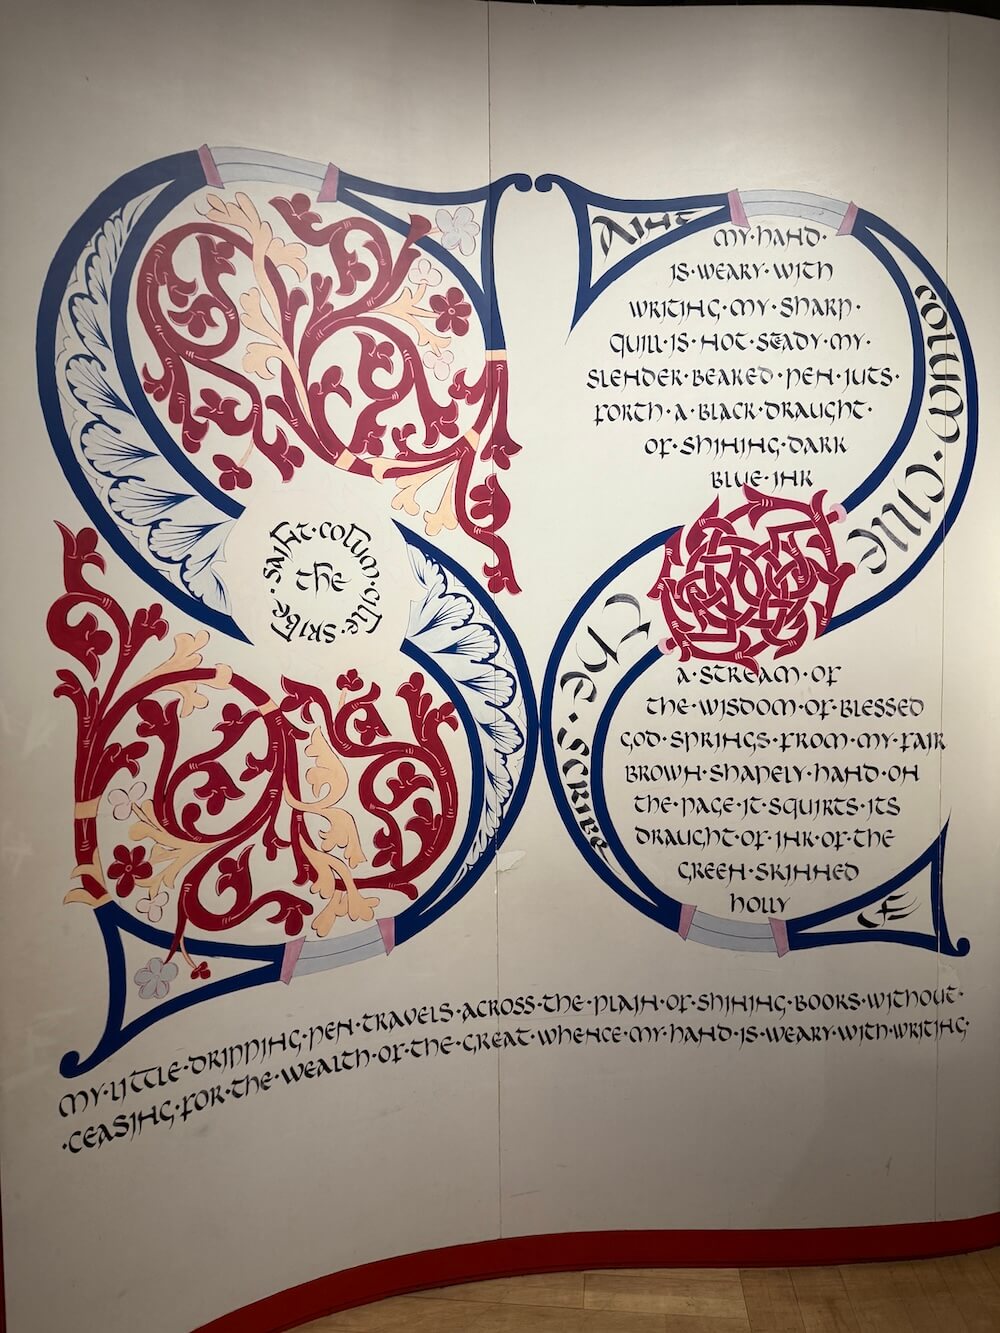 SAINT·COLUM·CILLE
the
AINT
COLUM·CILLE
the·SCRIBE
MY·HAND·
IS·WEARY·WITH
WRITING·MY·SHARP·
QUILL·IS·NOT·STEADY·MY·
SLENDER·BEAKED·PEN·JUTS·
FORTH·A·BLACK·DRAUGHT·
OF·SHINING·DARK
BLUE·INK
A·STREAM·OF
THE·WISDOM·OF·BLESSED
GOD·SPRINGS·FROM·MY·FAIR
BROWN·SHAPELY·HAND·ON
THE·PAGE·IT·SQUIRTS·ITS
DRAUGHT·OF·INK·OF·THE
GREEN·SKINNED
HOLLY
MY·LITTLE·DRIPPING·PEN·TRAVELS·ACROSS·THE·PLAIN·OF·SHINING·BOOKS·WITHOUT·
·CEASING·FOR·THE·WEALTH·OF·THE·GREAT·WHENCE·MY·HAND·IS·WEARY·WITH·WRITING·